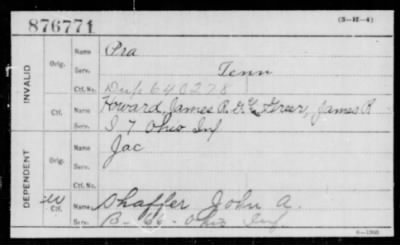 876771
(3-HI-4)
INVALID
Orig.
Name Pra
Serv. Tenn
Ctf. No. Dup 640278
Ctf.
Name Howard, James R. Greer, James R
Serv. I 7 Ohio Inf
DEPENDENT
Orig.
Name Jac
Serv.
Ctf. No.
Ctf.
Name Shaffer John A.
Serv. B-66-Ohio Inf.